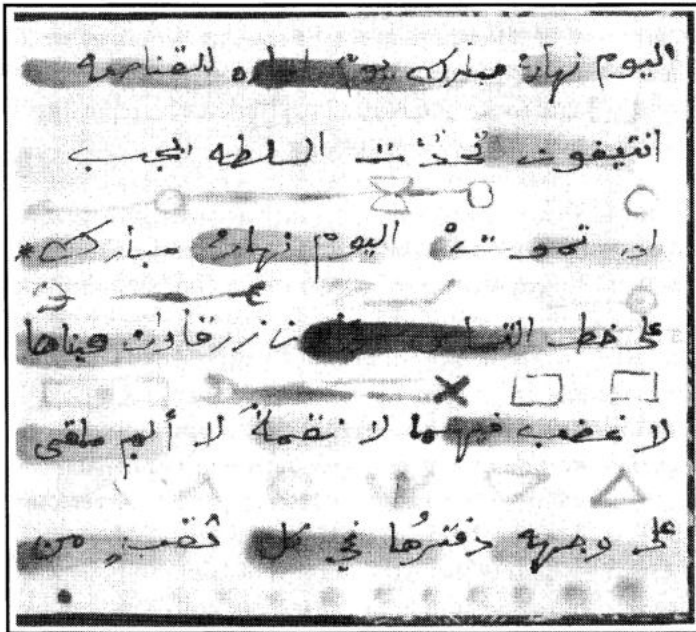 اليوم نهارٌ مبارك يوم للقناصه
انتيغون تحدّت السلطه المجب
ان تموت اليوم نهارٌ مبارك*
على خط زرقاوان عيناها
لا غضب فيهما لا نقمةٌ لا ألم ملقى
على وجهه دفترُها في كل ثقب من